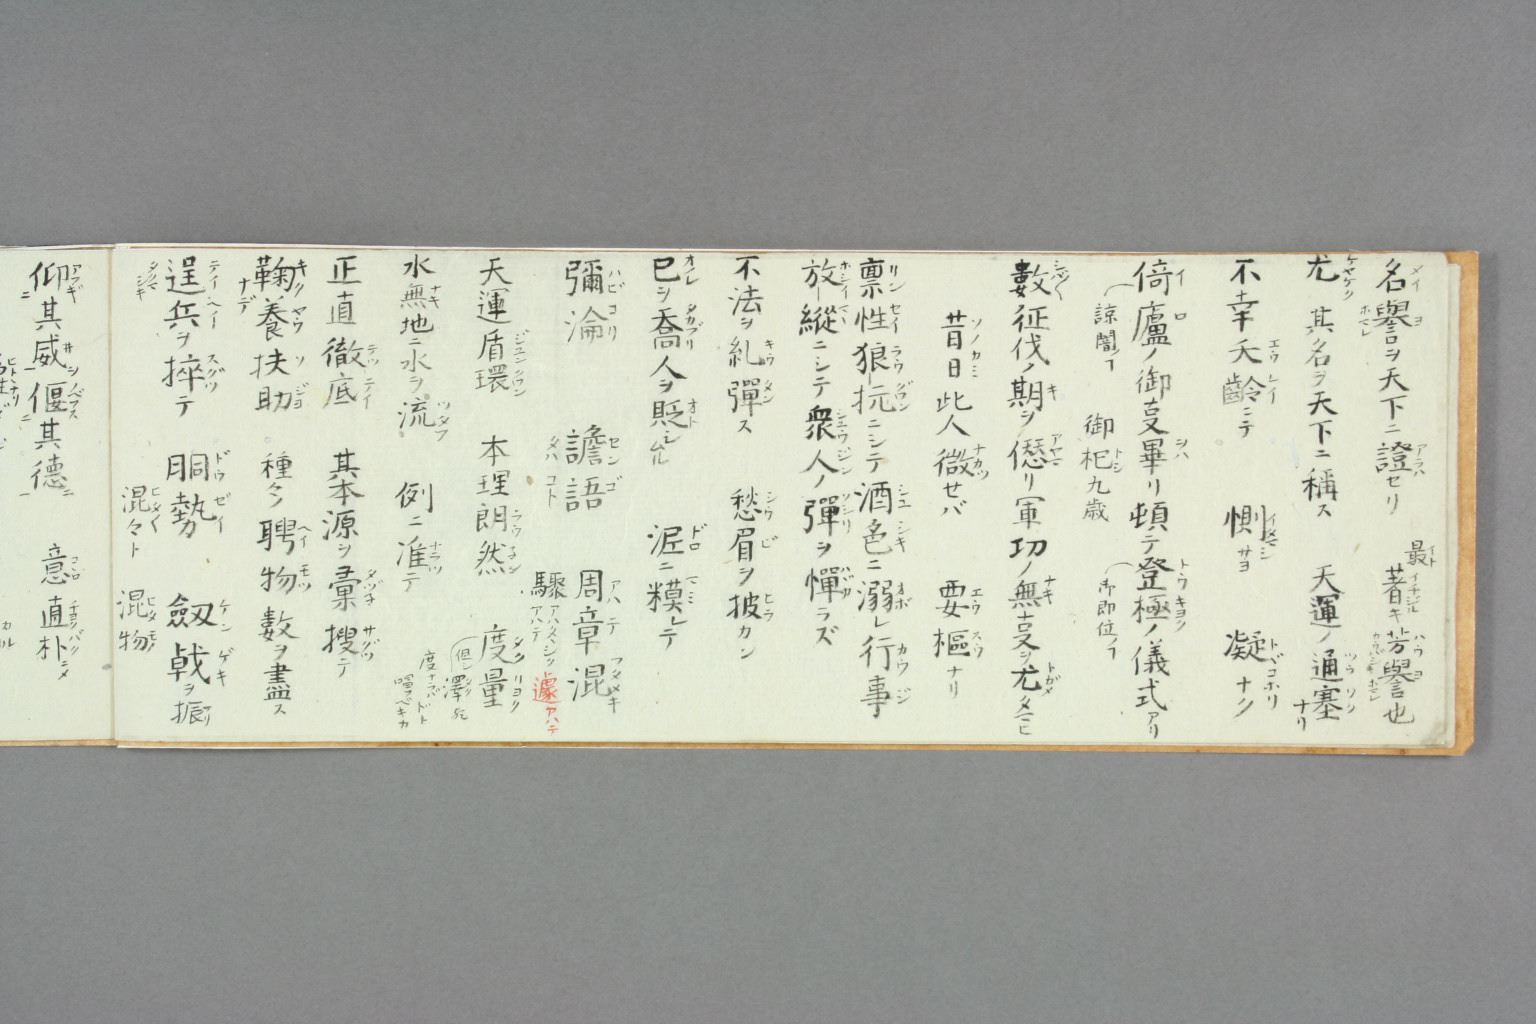 名譽ヲ天下ニ證セリ 最著キ芳譽也
尤 其名ヲ天下ニ稱ス 天運ノ通塞ナリ
不幸夭齢ニテ 惻サヨ 凝ナク
倚廬ノ御㕝畢リ頓テ登極ノ儀式アリ
諒闇ノ 御即位ノ
御杞九歳
數征伐ノ期ヲ僭リ軍功ノ無㕝ヲ尤タマヒ
昔日此人微セバ 要樞ナリ
禀性狼抗ニシテ酒色ニ溺レ行事
放縦ニシテ衆人ノ彈ヲ憚ラズ
不法ヲ糺彈ス 愁眉ヲ披カン
已ヲ喬人ヲ貶シムル 泥ニ糢レテ
彌淪 譫語 周章混
驟 遽
天運盾環 本理朗然 度量
水無地ニ水ヲ流 例ニ准テ
正直徹底 其本源ヲ彙搜テ
鞠養扶助 種々ノ聘物數ヲ盡ス
逞兵ヲ捽テ 胴勢 劔戟ヲ振
混々ト 混物
仰其威偃其德 意直朴ニメ